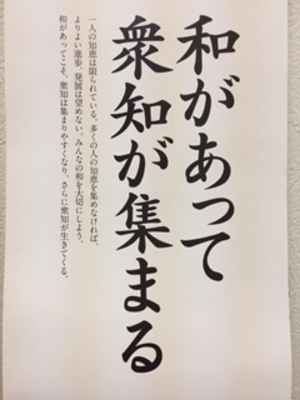 和があって
衆知が集まる
一人の知恵は限られている。多くの人の知恵を集めなければ、
よりよい進歩、発展は望めない。みんなの和を大切にしよう。
和があってこそ、衆知は集まりやすくなり、さらに衆知が生きてくる。